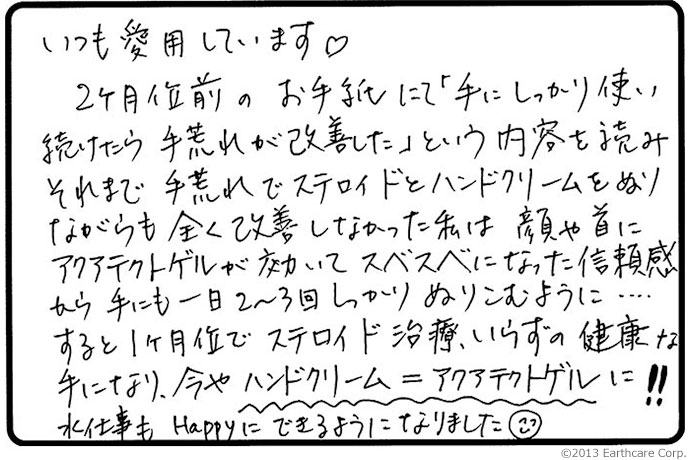 いつも愛用しています♡
2ヶ月位前の お手紙にて「手にしっかり使い
続けたら 手荒れが改善した」という内容を読み
それまで 手荒れでステロイドとハンドクリームをぬり
ながらも 全く改善しなかった私は 顔や首に
アクアテクトゲルが効いて スベスベになった信頼感
から 手にも一日2〜3回しっかり ぬりこむように‥‥
すると 1ヶ月位で ステロイド治療いらずの健康な
手になり、今や ハンドクリーム=アクアテクトゲルに!!
水仕事も Happyに できるようになりました
©2013 Earthcare Corp.